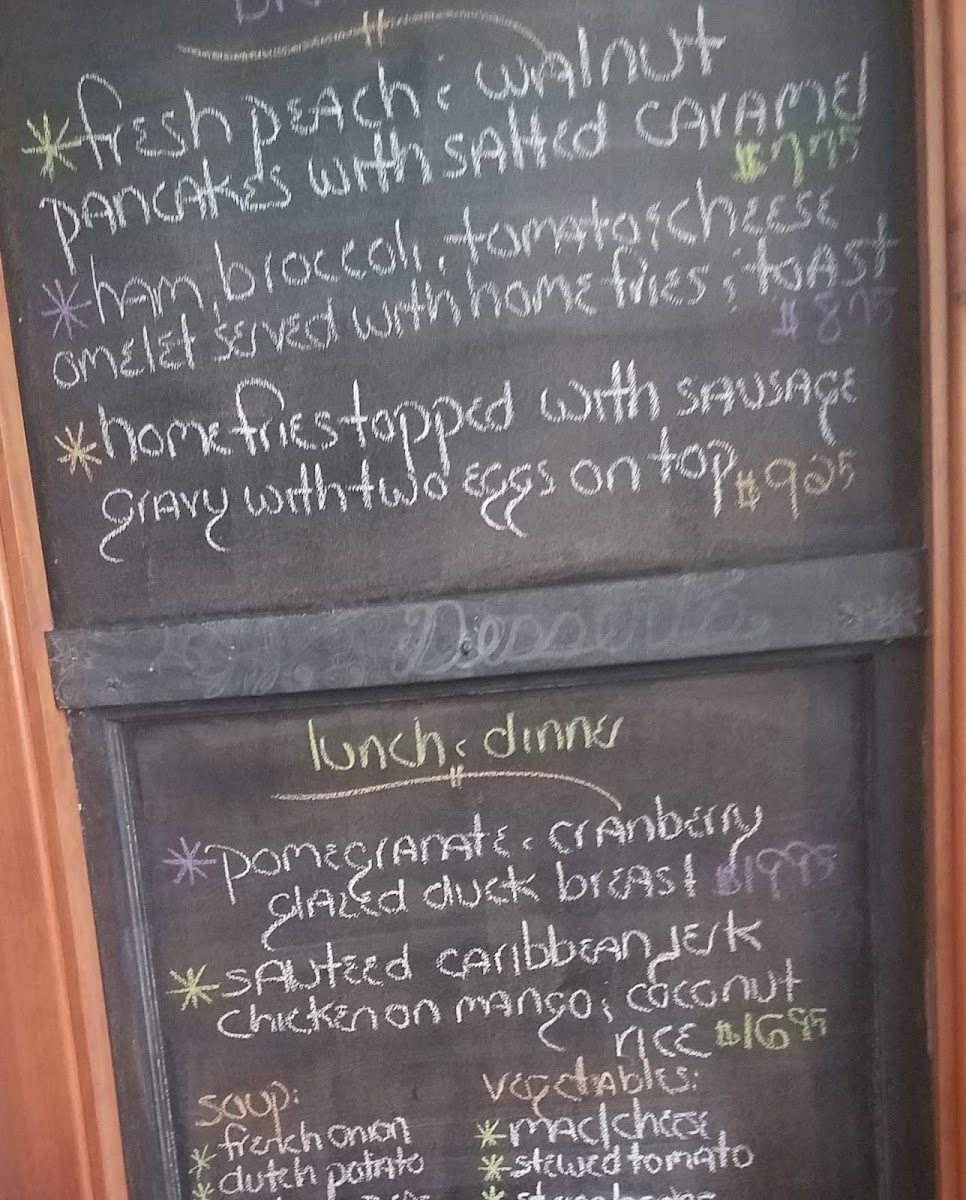 *fresh peach & walnut
pancakes with salted caramel
$7.75
*ham, broccoli, tomato & cheese
omelet served with home fries & toast
$8.75
*home fries topped with sausage
gravy with two eggs on top $9.25
Desserts
lunch & dinner
*pomegranate & cranberry
glazed duck breast $19.95
*sauteed caribbean jerk
chicken on mango & coconut
rice $16.95
soup:
*french onion
*dutch potato
vegetables:
*mac/cheese
*stewed tomato